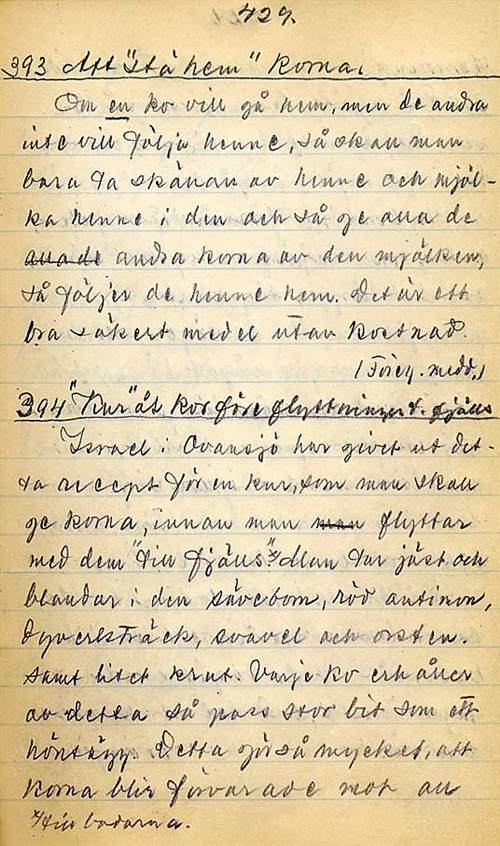 429.
393 Att "stå hem" korna.
Om en ko vill gå hem, men de andra
inte vill följa henne, så skall man
bara ta skånan av henne och mjöl-
ka henne i den och så ge alla de
alla de andra korna av den mjölken,
så följer de henne hem. Det är ett
bra säkert medel utan kostnad.
(Föreg. medd.)
394 "Kur" åt kor före flyttningen t. fjälls
Israel i Ovansjö har givet ut det-
ta recept för en kur, som man skall
ge korna, innan man man flyttar
med dem "till fjälls" x) Man tar jäst och
blandar i den sävebom, röd antimon,
dyvelsträck, svavel och orsten.
samt litet krut. Varje ko erhåller
av detta så pass stor bit som ett
hönsägg. Detta gör så mycket, att
korna blir förvarade mot all
x) till bodarna.